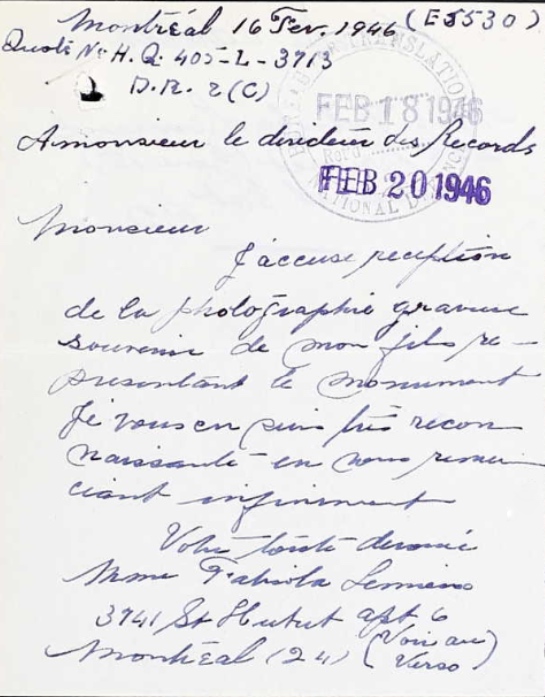 Montréal 16 Fev. 1946 (E5530)
Quote No H.Q. 405-L-3713
D.R. 2(C)
FEB 18 1946
A monsieur le directeur des Records
FEB 20 1946
Monsieur
J'accuse reception
de la photographie graveuse
souvenir de mon fils re-
presentant le monument
Je vous en suis très recon
naissante en vous remer
ciant infiniment
Votre toute devouée
Mme Fabiola
3741 St Hubert apt 6
Montréal (24) (Voir au
Verso)